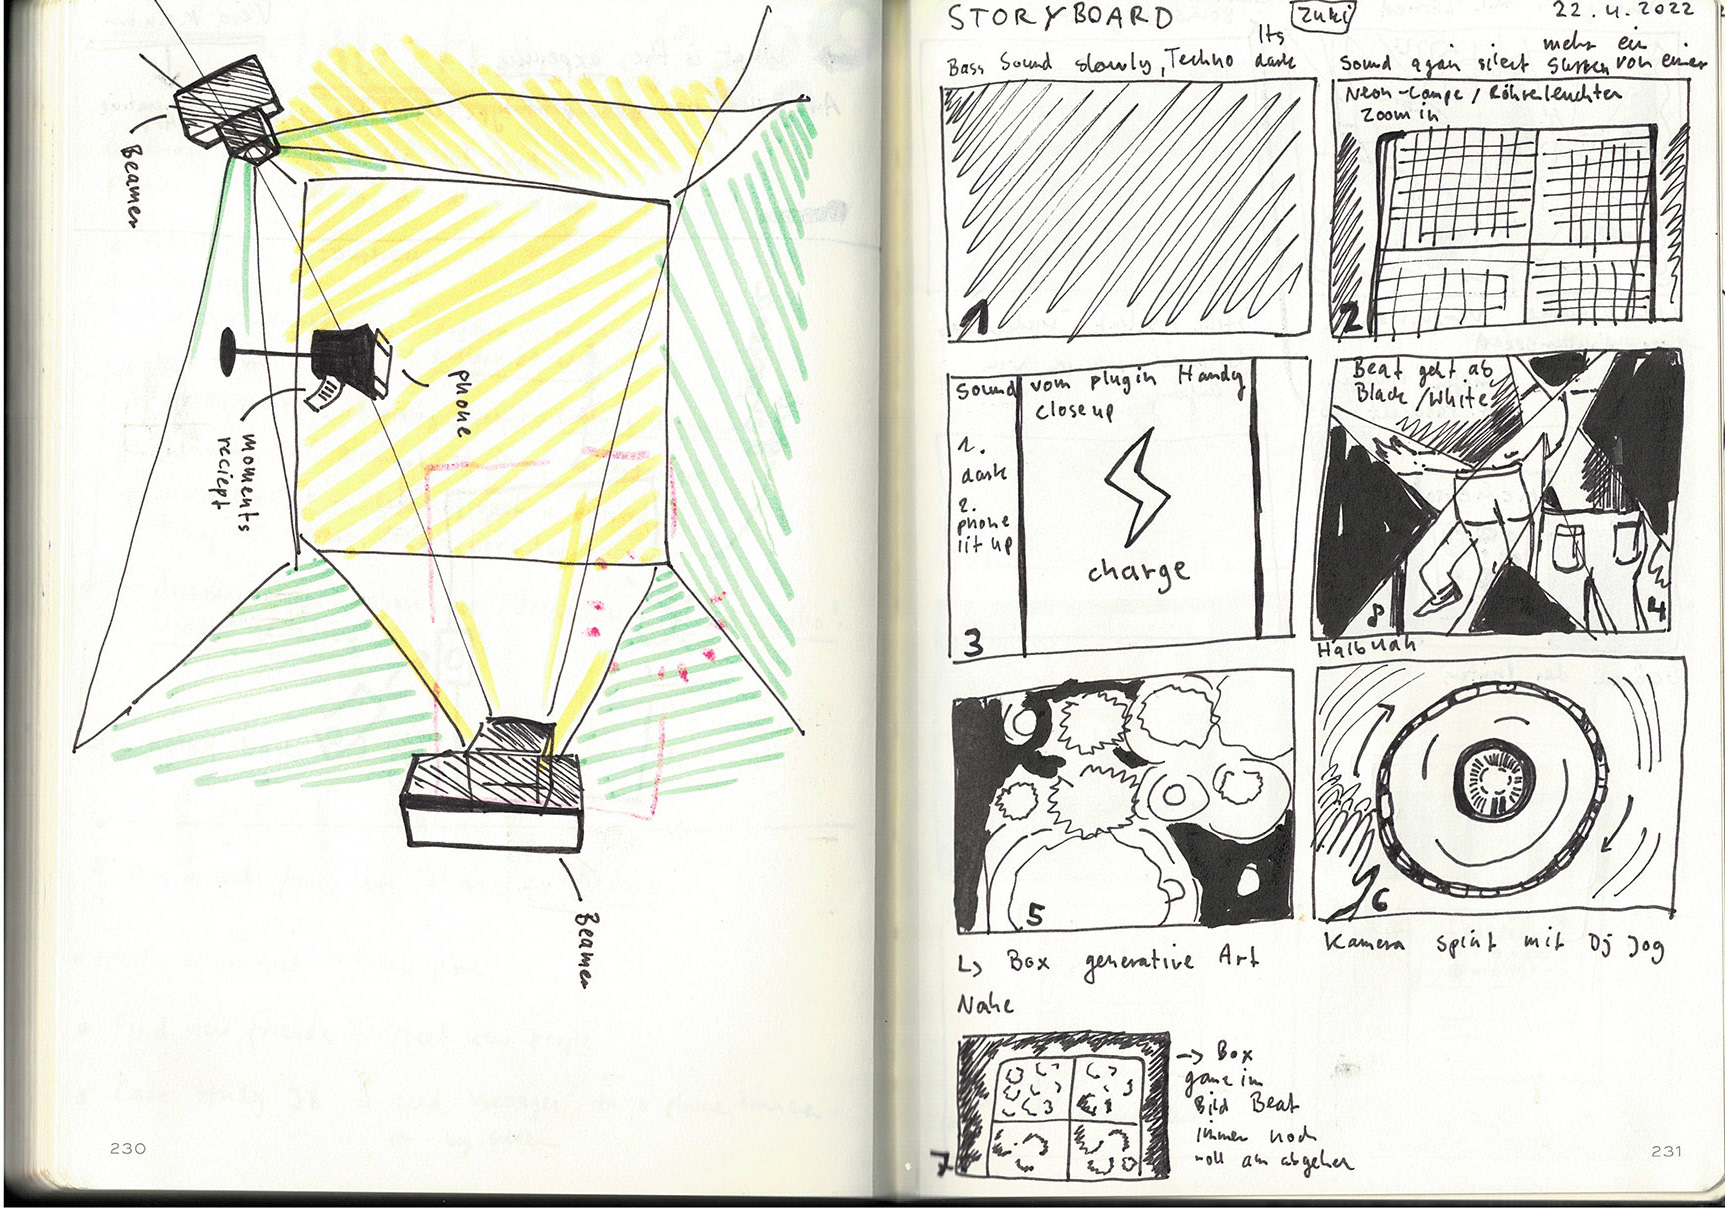 Beamer
phone
moments
reciept
Beamer
230
STORYBOARD
Zuki
22.4.2022
Bass Sound slowly, Techno
Its
dark
Sound again silent
mehr ein
Surren von einer
Neon-Lampe / Röhrenleuchter
Zoom in
1
2
Sound vom plugin Handy
close up
1.
dark
2.
phone
lit up
charge
3
Beat geht ab
Black/White
4
Halbnah
5
6
↳ Box generative Art
Nahe
Kamera spint mit Dj Jog
→ Box
ganz im
Bild Beat
immer noch
voll am abgehen
7
231